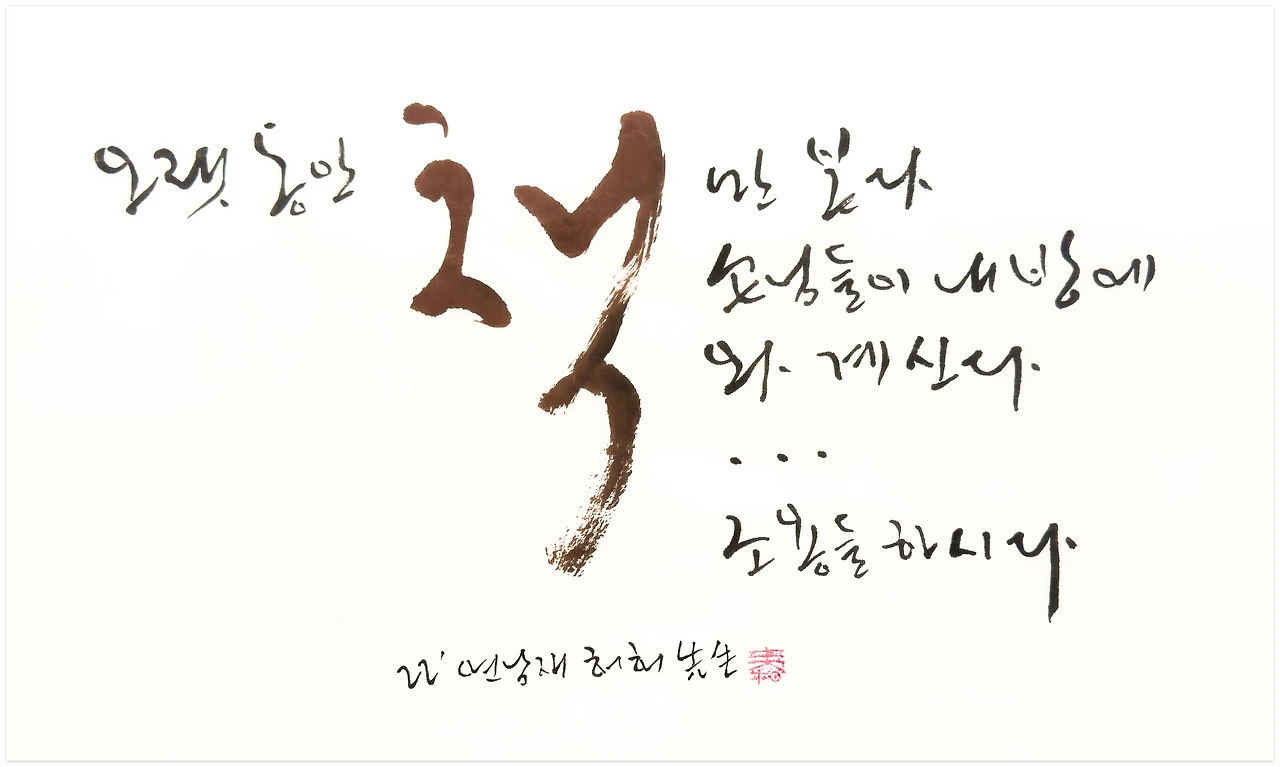 오랫동안 책만 봤다
손님들이 내방에
와 계신다
...
조용들 하시다.
22' 연남재 허허 先生